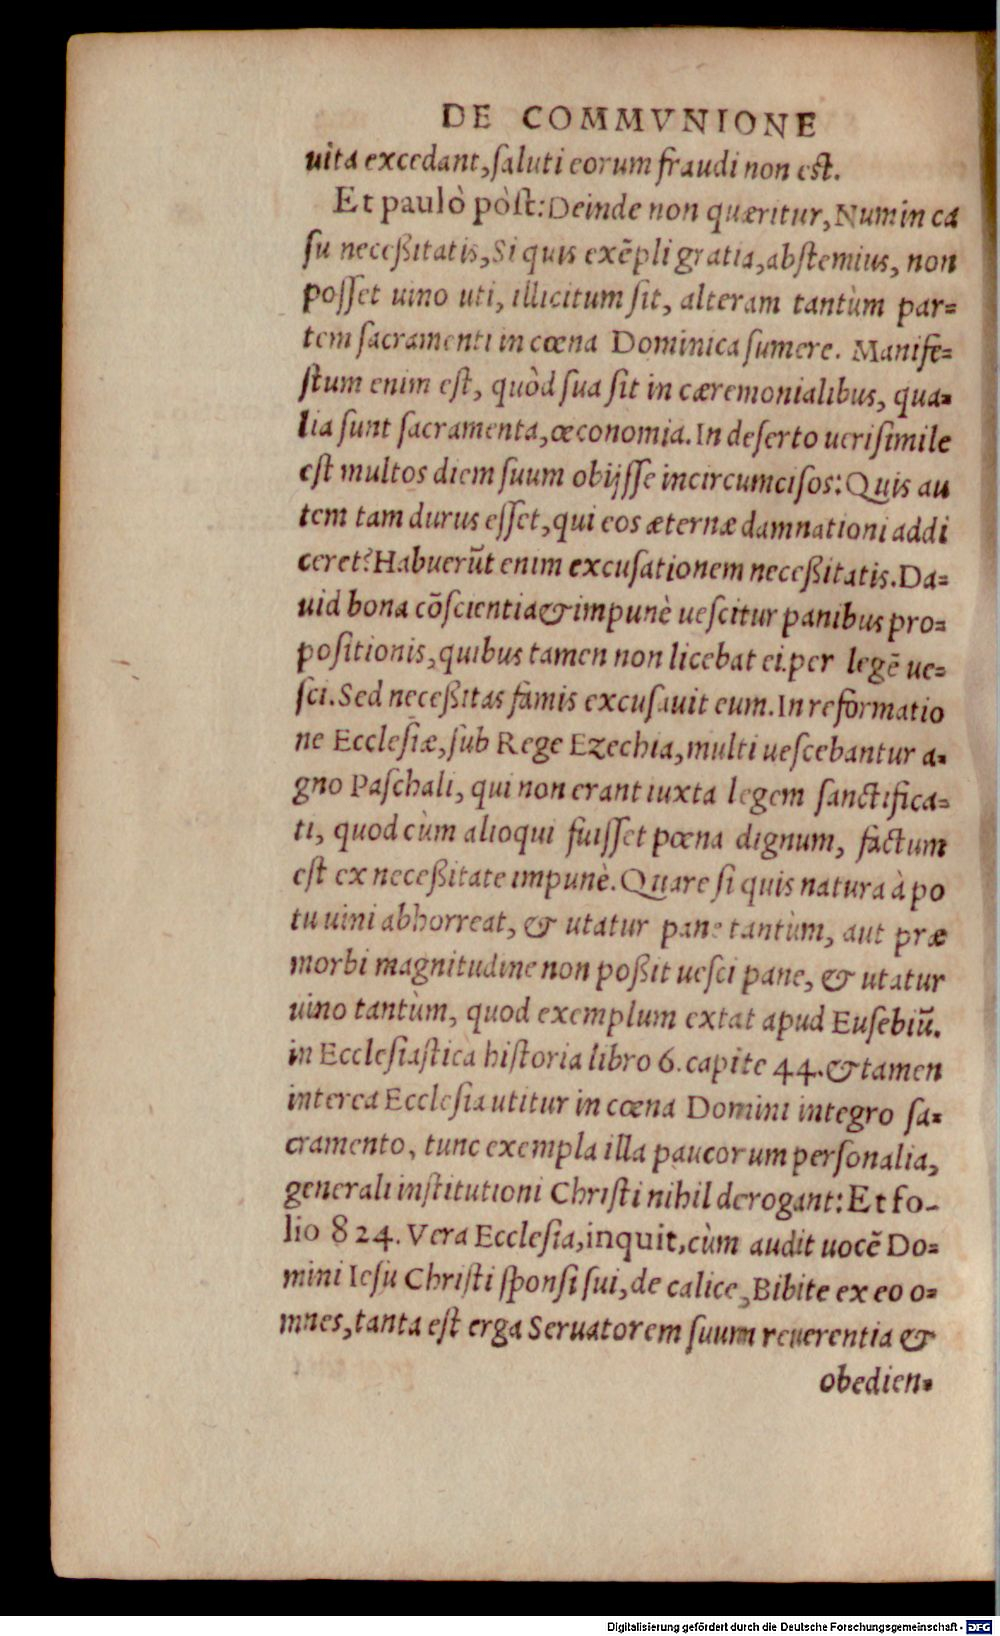 DE COMMVNIONE
uita excedant, ſaluti eorum fraudi non eſt.
Et paulò pòſt: Deinde non quæritur, Num in ca
ſu neceßitatis, Si quis exẽpli gratia, abſtemius, non
poſſet uino uti, illicitum ſit, alteram tantùm par=
tem ſacramenti in cœna Dominica ſumere. Manife=
ſtum enim eſt, quòd ſua ſit in cæremonialibus, qua=
lia ſunt ſacramenta, œconomia. In deſerto ueriſimile
eſt multos diem ſuum obijſſe incircumciſos: Quis au
tem tam durus eſſet, qui eos æternæ damnationi addi
ceret? Habuerũt enim excuſationem neceßitatis. Da=
uid bona cõſcientia & impunè ueſcitur panibus pro=
poſitionis, quibus tamen non licebat ei per legẽ ue=
ſci. Sed neceßitas famis excuſauit eum. In reformatio
ne Eccleſiæ, ſub Rege Ezechia, multi ueſcebantur a=
gno Paſchali, qui non erant iuxta legem ſanctifica=
ti, quod cùm alioqui fuiſſet pœna dignum, factum
eſt ex neceßitate impunè. Quare ſi quis natura à po
tu uini abhorreat, & utatur pane tantùm, aut præ
morbi magnitudine non poßit ueſci pane, & utatur
uino tantùm, quod exemplum extat apud Euſebiũ.
in Eccleſiaſtica hiſtoria libro 6. capite 44. & tamen
interea Eccleſia utitur in cœna Domini integro ſa=
cramento, tunc exempla illa paucorum perſonalia,
generali inſtitutioni Chriſti nihil derogant: Et fo-
lio 824. Vera Eccleſia, inquit, cùm audit uocẽ Do=
mini Ieſu Chriſti ſponſi ſui, de calice, Bibite ex eo o=
mnes, tanta eſt erga Seruatorem ſuum reuerentia &
obedien=
Digitalisierung gefördert durch die Deutsche Forschungsgemeinschaft - DFG